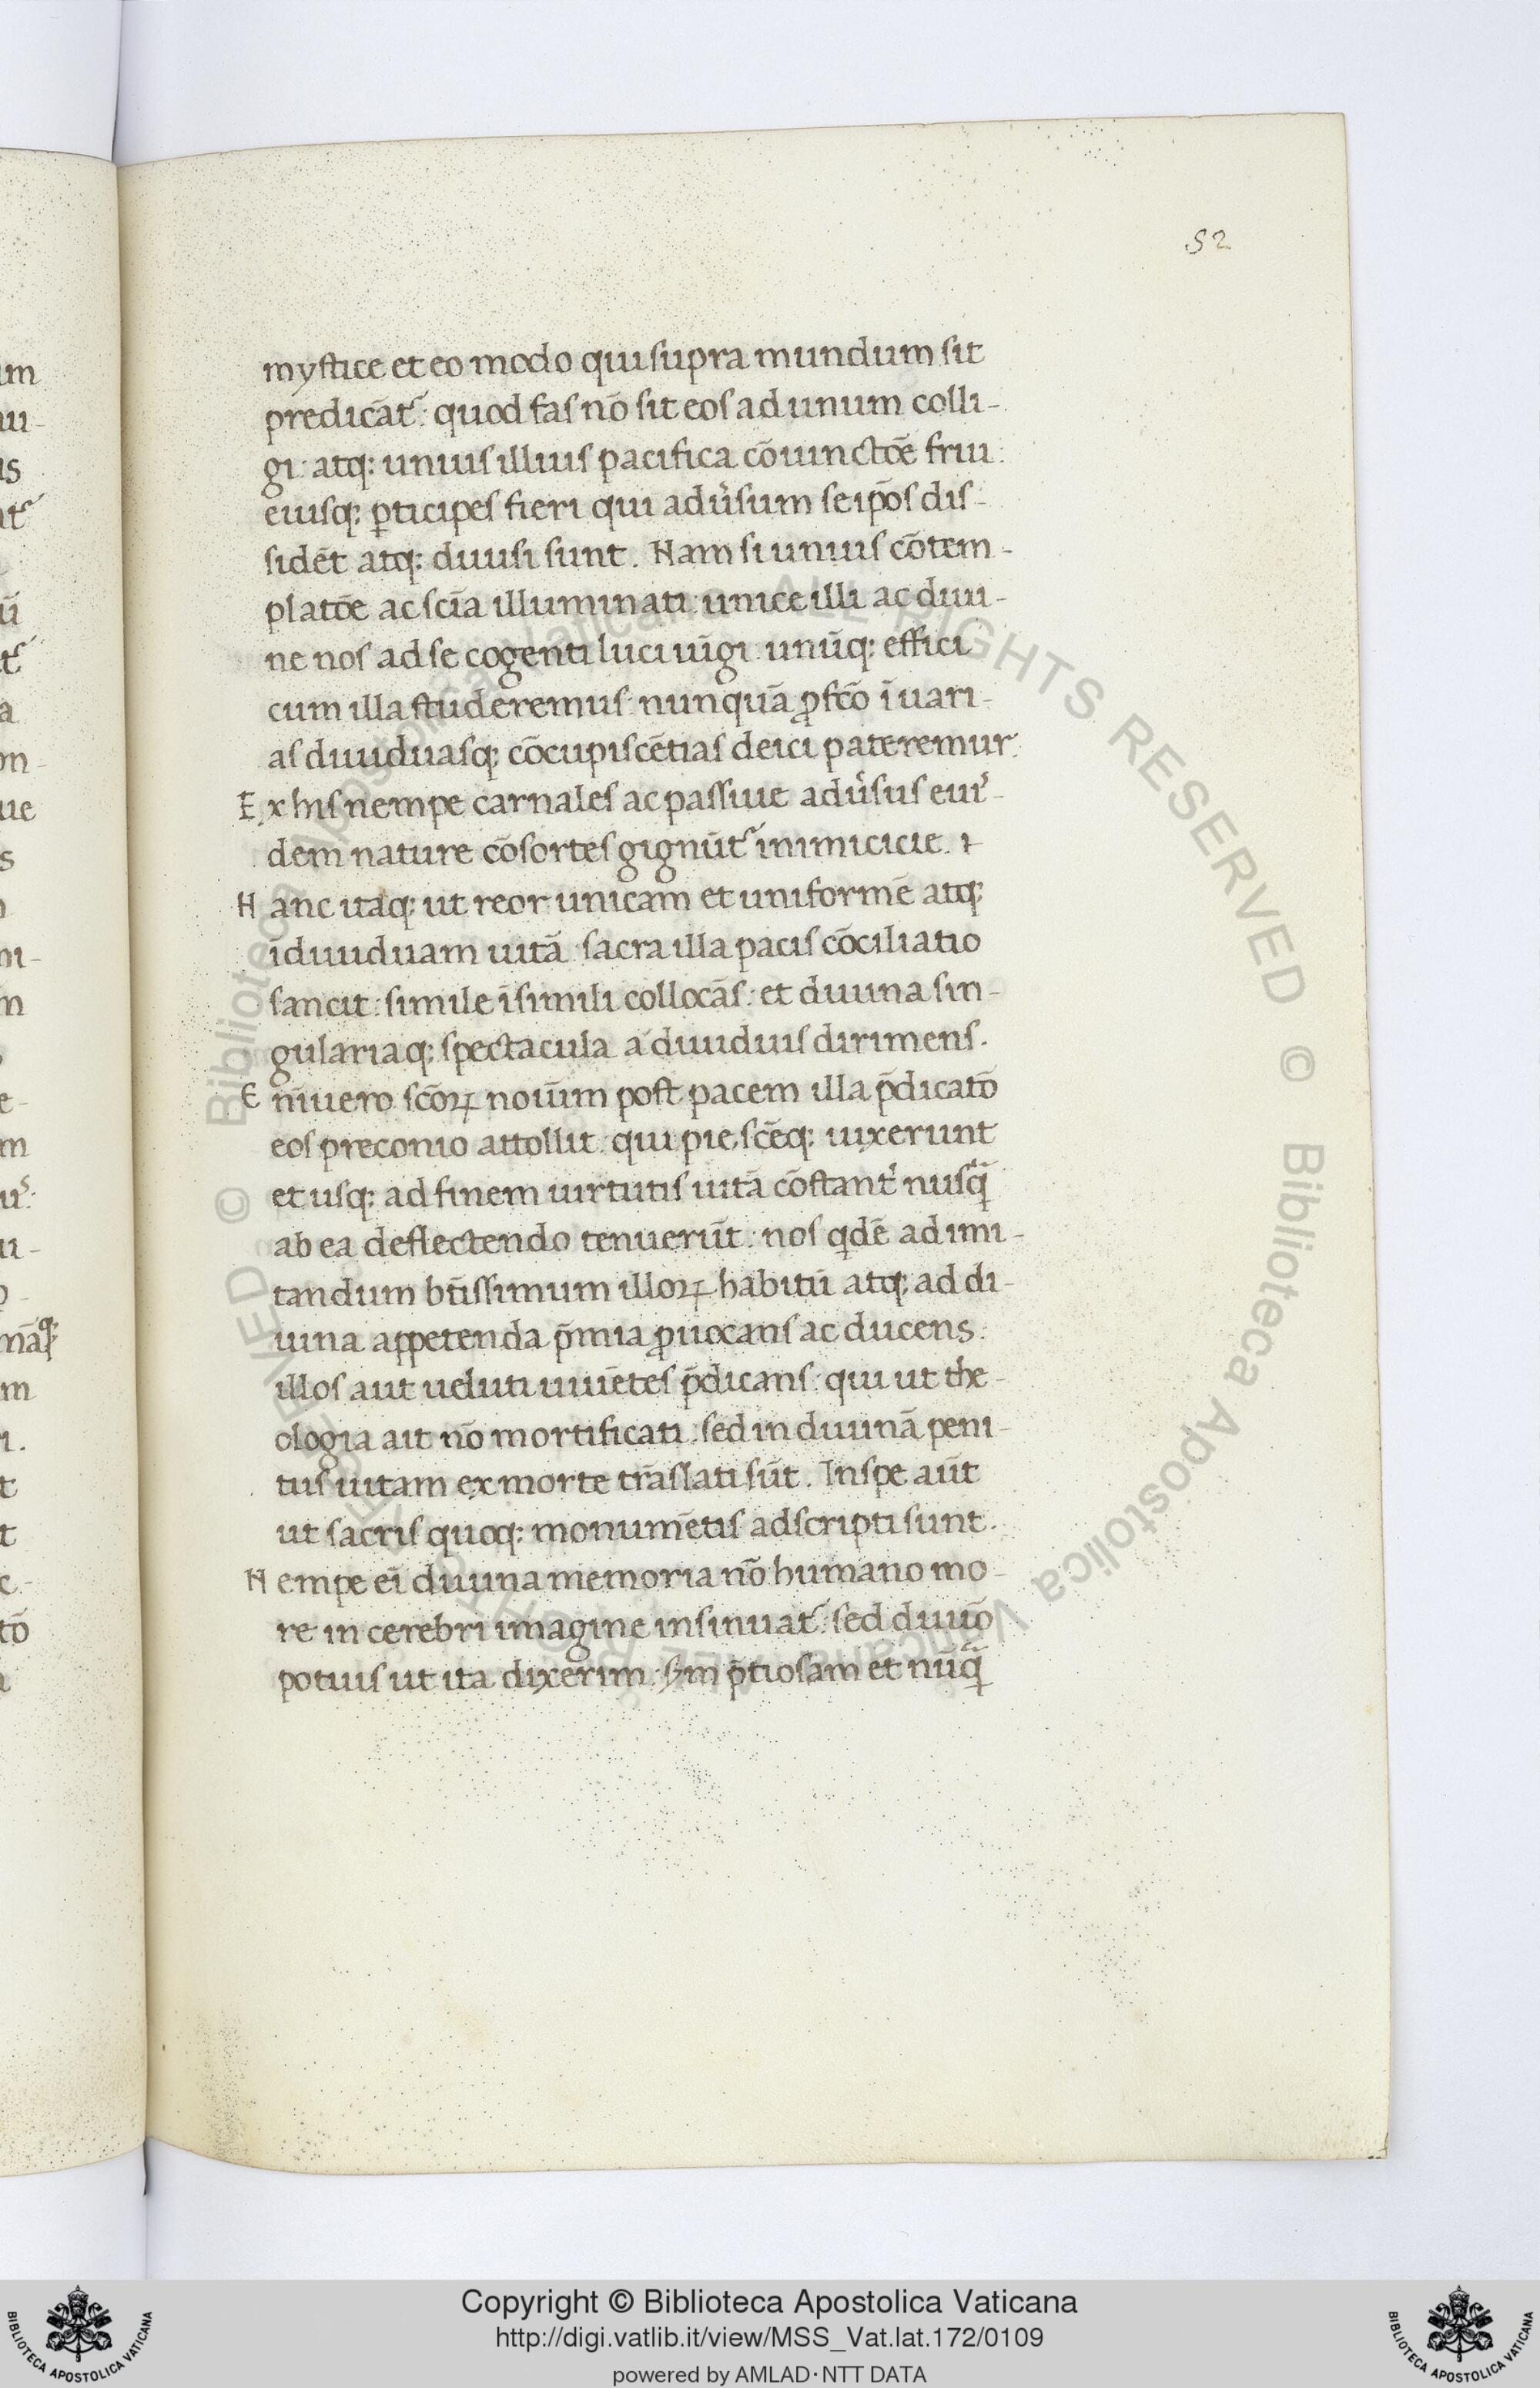 52
mystice et eo modo qui supra mundum sit
predicāt᷑: quod fas nō sit eos ad unum colli-
gi: atq; unius illius pacifica cōiunctōe frui:
eiusq; ꝑticipes fieri qui adũsum se ip̄os dis-
sidēt atq; diuisi sunt. Nam si unius cōtem-
platōe ac scīa illuminati: unice illi ac diui-
ne nos ad se cogenti luci iūgi: unūq; effici
cum illa studeremus: nunquā ꝓfcō ī uari-
as diuiduasq; cōcupiscētias deici pateremur.
Ex his nempe carnales ac passiue adũsus eius-
dem nature cōsortes gignūt᷑ inimicicie. ⁊
Hanc itaq; ut reor unicam et uniformē atq;
īdiuiduam uitā sacra illa pacis cōciliatio
sancit: simile ī simili collocās: et diuina sin-
gulariaq; spectacula a diuiduis dirimens.
Enīuero scōꝝ nouīm post pacem illa p̄dicatō
eos preconio attollit: qui pie scēq; uixerunt
et usq; ad finem uirtutis uitā cōstant᷑ nusq̄
ab ea deflectendo tenuerūt: nos qdē ad imi-
tandum btissimum illoꝝ habitū atq; ad di-
uina appetenda p̄mia ꝓuocans ac ducens:
illos aut ueluti uiuētes p̄dicans: qui ut the-
ologia ait nō mortificati: sed in diuinā peni-
tus uitam ex morte trāslati sūt. In spe aūt
ut sacris quoq; monumētis adscripti sunt.
Nempe eī diuina memoria nō humano mo-
re in cerebri imagine insinuat᷑: sed diuīo
potius ut ita dixerim: sm p̄tiosam et nūq̄
Copyright © Biblioteca Apostolica Vaticana
http://digi.vatlib.it/view/MSS_Vat.lat.172/0109
powered by AMLAD·NTT DATA